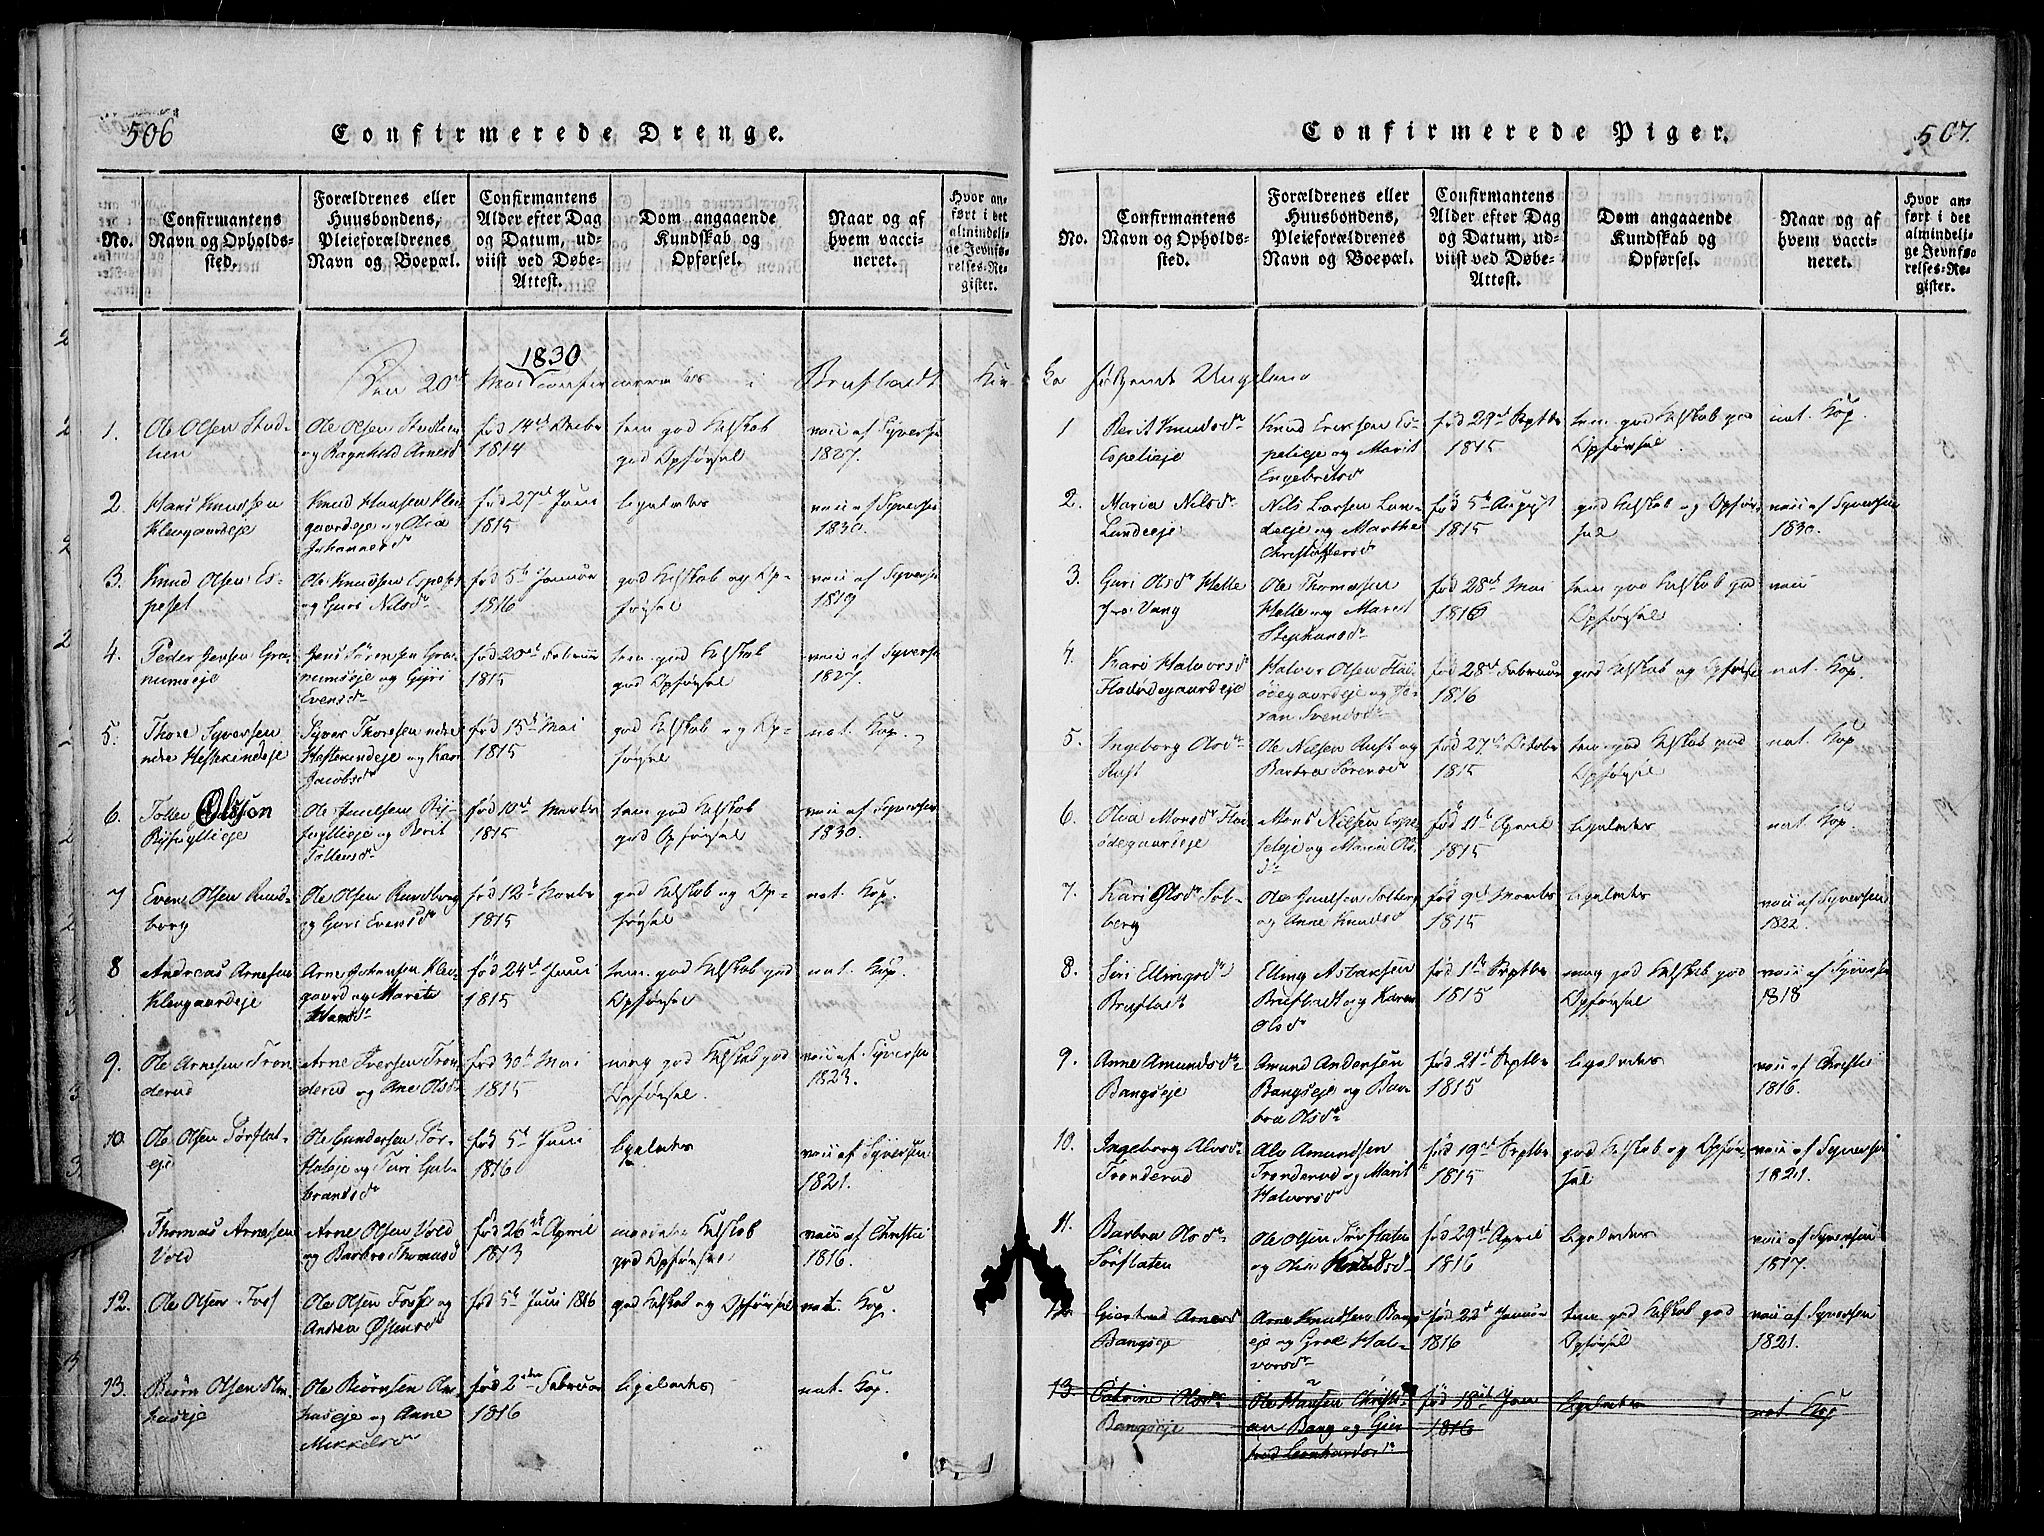 506
Confirmerede Drenge.
No.
Confirmantens
Navn og Opholds-
sted.
Forældrenes eller
Huusbondens,
Pleieforældrenes
Navn og Boepæl.
Confirmantens
Alder efter Dag
og Datum, ud-
viist ved Døbe-
Attest.
Dom angaaende
Kundskab og
Opførsel.
Naar og af
hvem vacci-
neret.
Hvor an-
ført i det
almindeli-
ge Jevnfø-
relses-Re-
gister.
1830
Den 20de Mai confirmeredes i Brufladt Kir-
1.
Ole Olsen Stud-
lien
Ole Olsen Studlien
og Ragnhild Arnesdr
født 14de Decbr
1814
tem. god Kdskab
god Opførsel
vacc. af Syversen
1827.
2.
Hans Knudsen
Klevgaardeje
Knud Hansen Klev-
gaardeje og Olea
Johannesdr
født 27de Juni
1815
ligeledes
vacc. af Syversen
1830.
3.
Knud Olsen Es-
peset
Ole Knudsen Espeset
og Guri Nilsdr
født 5te Januar
1816
god Kdskab og Op-
førsel
vacc. af Syversen
1819
4.
Peder Jensen Gra-
numseje
Jens Sörensen Gra-
numseje og Gjri
Evensdr
født 20de Februar
1815
tem. god Kdskab
god Opførsel
vacc. af Syversen
1827.
5.
Thore Syversen
ndre Hestekindeje
Syver Thoresen ndre
Hestekindeje og Kari
Jacobsdr
født 15de Mai
1815
god Kdskab og Op-
førsel
nat. Kop.
6.
Tollev Olsson
Ole
og Berit
Tollevsdr
født 10de Marts
1815
tem god Kdskab
god Opførsel
vacc af Syversen
1830.
7
Even Olsen Rund-
borg
Ole Olsen Rundborg
og Guri Evensdr
født 12te Novbr
1815
god Kdskab og Op-
førsel
nat. Kop.
8
Andreas Arnesen
Klevgaardeje
Arne Johansen Klev-
gaard og Marite
Hansdr
født 24de Juni
1815
tem. god Kdskab god
Opførsel
nat. Kop.
9.
Ole Arnesen Tron
derud
Arne Iversen Tron
derud og Ane Olsdr
født 30te Mai
1815
meg god Kdskab god
Opførsel.
vacc af Syversen
1823.
10.
Ole Olsen Sörflat-
eje
Ole Gundersen Sör-
flateje og Turi Gul-
brandsdr
født 5te Juni
1816
ligeledes
vacc af Syversen
1821.
Thomas Arnesen
Vold
Arne Olsen Vold
og Barbro Thomasdr
født 26de April
1813
maadel. Kdskab
god Opførsel
vacc af Christie
1816.
12.
Ole Olsen Foss
Ole Olsen Foss og
Andrea Östensdr
født 5te Juni 1816
god Kdskab og Opførsel
nat. Kop.
13.
Biörn Olsen Olm-
haseje
Ole Biörnsen Olm-
haseje og Anne
Mikkelsdr
født 2den Februar
1816
ligeledes
nat. Kop.
507.
Confirmerede Piger.
No.
Confirmantens
Navn og Opholds-
sted.
Forældrenes eller
Huusbondens,
Pleieforældrenes
Navn og Boepæl.
Confirmantens
Alder efter Dag
og Datum, ud-
viist ved Døbe-
Attest.
Dom angaaende
Kundskab og
Opførsel.
Naar og af
hvem vacci-
neret.
Hvor an-
ført i det
almindeli-
ge Jevnfø-
relses-Re-
gister.
ke følgende Ungdom
1
Berit Knudsdr
Espelieje
Knud Ericksen Es-
pelieje og Marit
Engebretsdr
født 29de Septbr
1815
tem. god Kdskab god
Opførsel
nat. Kop.
2.
Maria Nilsdr
Lundeeje
Nils Larsen Lun-
deeje og Marthe
Christoffersdr
født 5te August
1815
god Kdskab og Opför-
sel
vacc af Syversen
1830.
3.
Guri Olsdr Helle
fra Vang
Ole Thomassen
Helle og Marit
Stephansdr
født 28de Mai
1816
tem god Kdskab god
Opførsel
vacc
4.
Kari Halvorsdr
Flaödegaardeje
Halvor Olsen Fla-
ödegaardeje og Jö-
ran Svendsdr
født 28de Februar
1816
god Kdskab og Opførsel
nat. Kop.
5.
Ingeborg Olsdr
Rust
Ole Nilsen Rust og
Barbra Sörensdr
født 27de Octobr
1815
tem god Kdskab god
Opførsel
nat. Kop.
6.
Olea Monsdr Fla-
ödegaardeje
Mons Nilsen Espe-
seteje og Maria Ols
dr
født 11te April
1815
ligeledes
nat. Kop.
7.
Kari Olsdr Sol-
berg
Ole Juulsen Solberg
og Anne Knudsdr
født 9de Novbr
1815
ligeledes
vacc af Syversen
1822.
8.
Siri Ellingsdr
Brufladt
Elling Aslaksen
Brufladt og Karen
Olsdr
født 1ste Septbr
1815
meg god Kdskab god
Opførsel
vacc af Syversen
1818
9.
Anne Amundsdr
Bangseje
Amund Andersen
Bangseje og Bar-
bra Olsdr
født 21de Septbr
1815
ligeledes
vacc af Christie
1816.
10.
Ingeborg Alvsdr
Tronderud
Alv Amundsen
Tronderud og Marit
Halvorsdr
født 19de Septbr
1815
god Kdskab og Opför-
sel
vacc af Syversen
1821.
11.
Barbra Olsdr
Sörflaten
Ole Olsen Sörflaten
og
født 29de April
1816
ligeledes
vacc af Syversen
1817.
12.
Giertrud Arnesdr
Bangseje
Arne Knudsen Bangs-
eje og Groe Hal-
vorsdr
født 22de Januar
1816
tem god Kdskab god
Opførsel
vacc af Syversen
1821.
13
Cathrine Olsdr
Bangseje
Ole Hansen Christi-
an Bang og Gjer
trud Leonhardsdr
født 18de Jan
1816
ligeledes
nat Kop